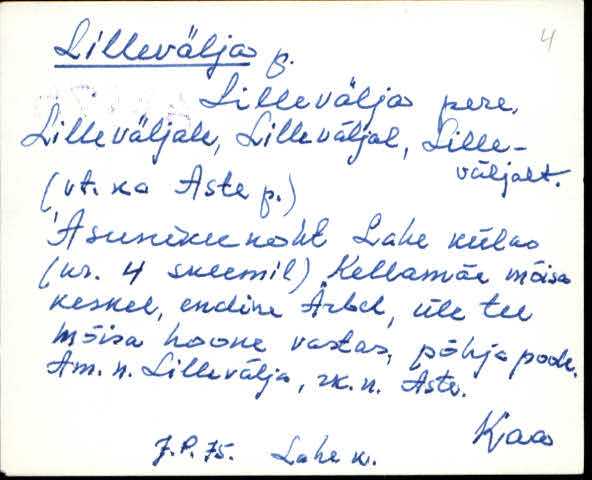 4
Lilleväljas p.
Lilleväljas pere,
Lilleväljale, Lilleväljal, Lille-
väljalt.
(vt. ka Aste p.)
Asuniku koht Lahe külas
(nr. 4 skeemil) Kellamäe mõisa
keskel, endine Ärbel, üle tee
mõisa hoone vastas, põhja pool.
Am. n. Lillevälja, rk. n. Aste.
Kaa
J.P. 75. Lahe k.